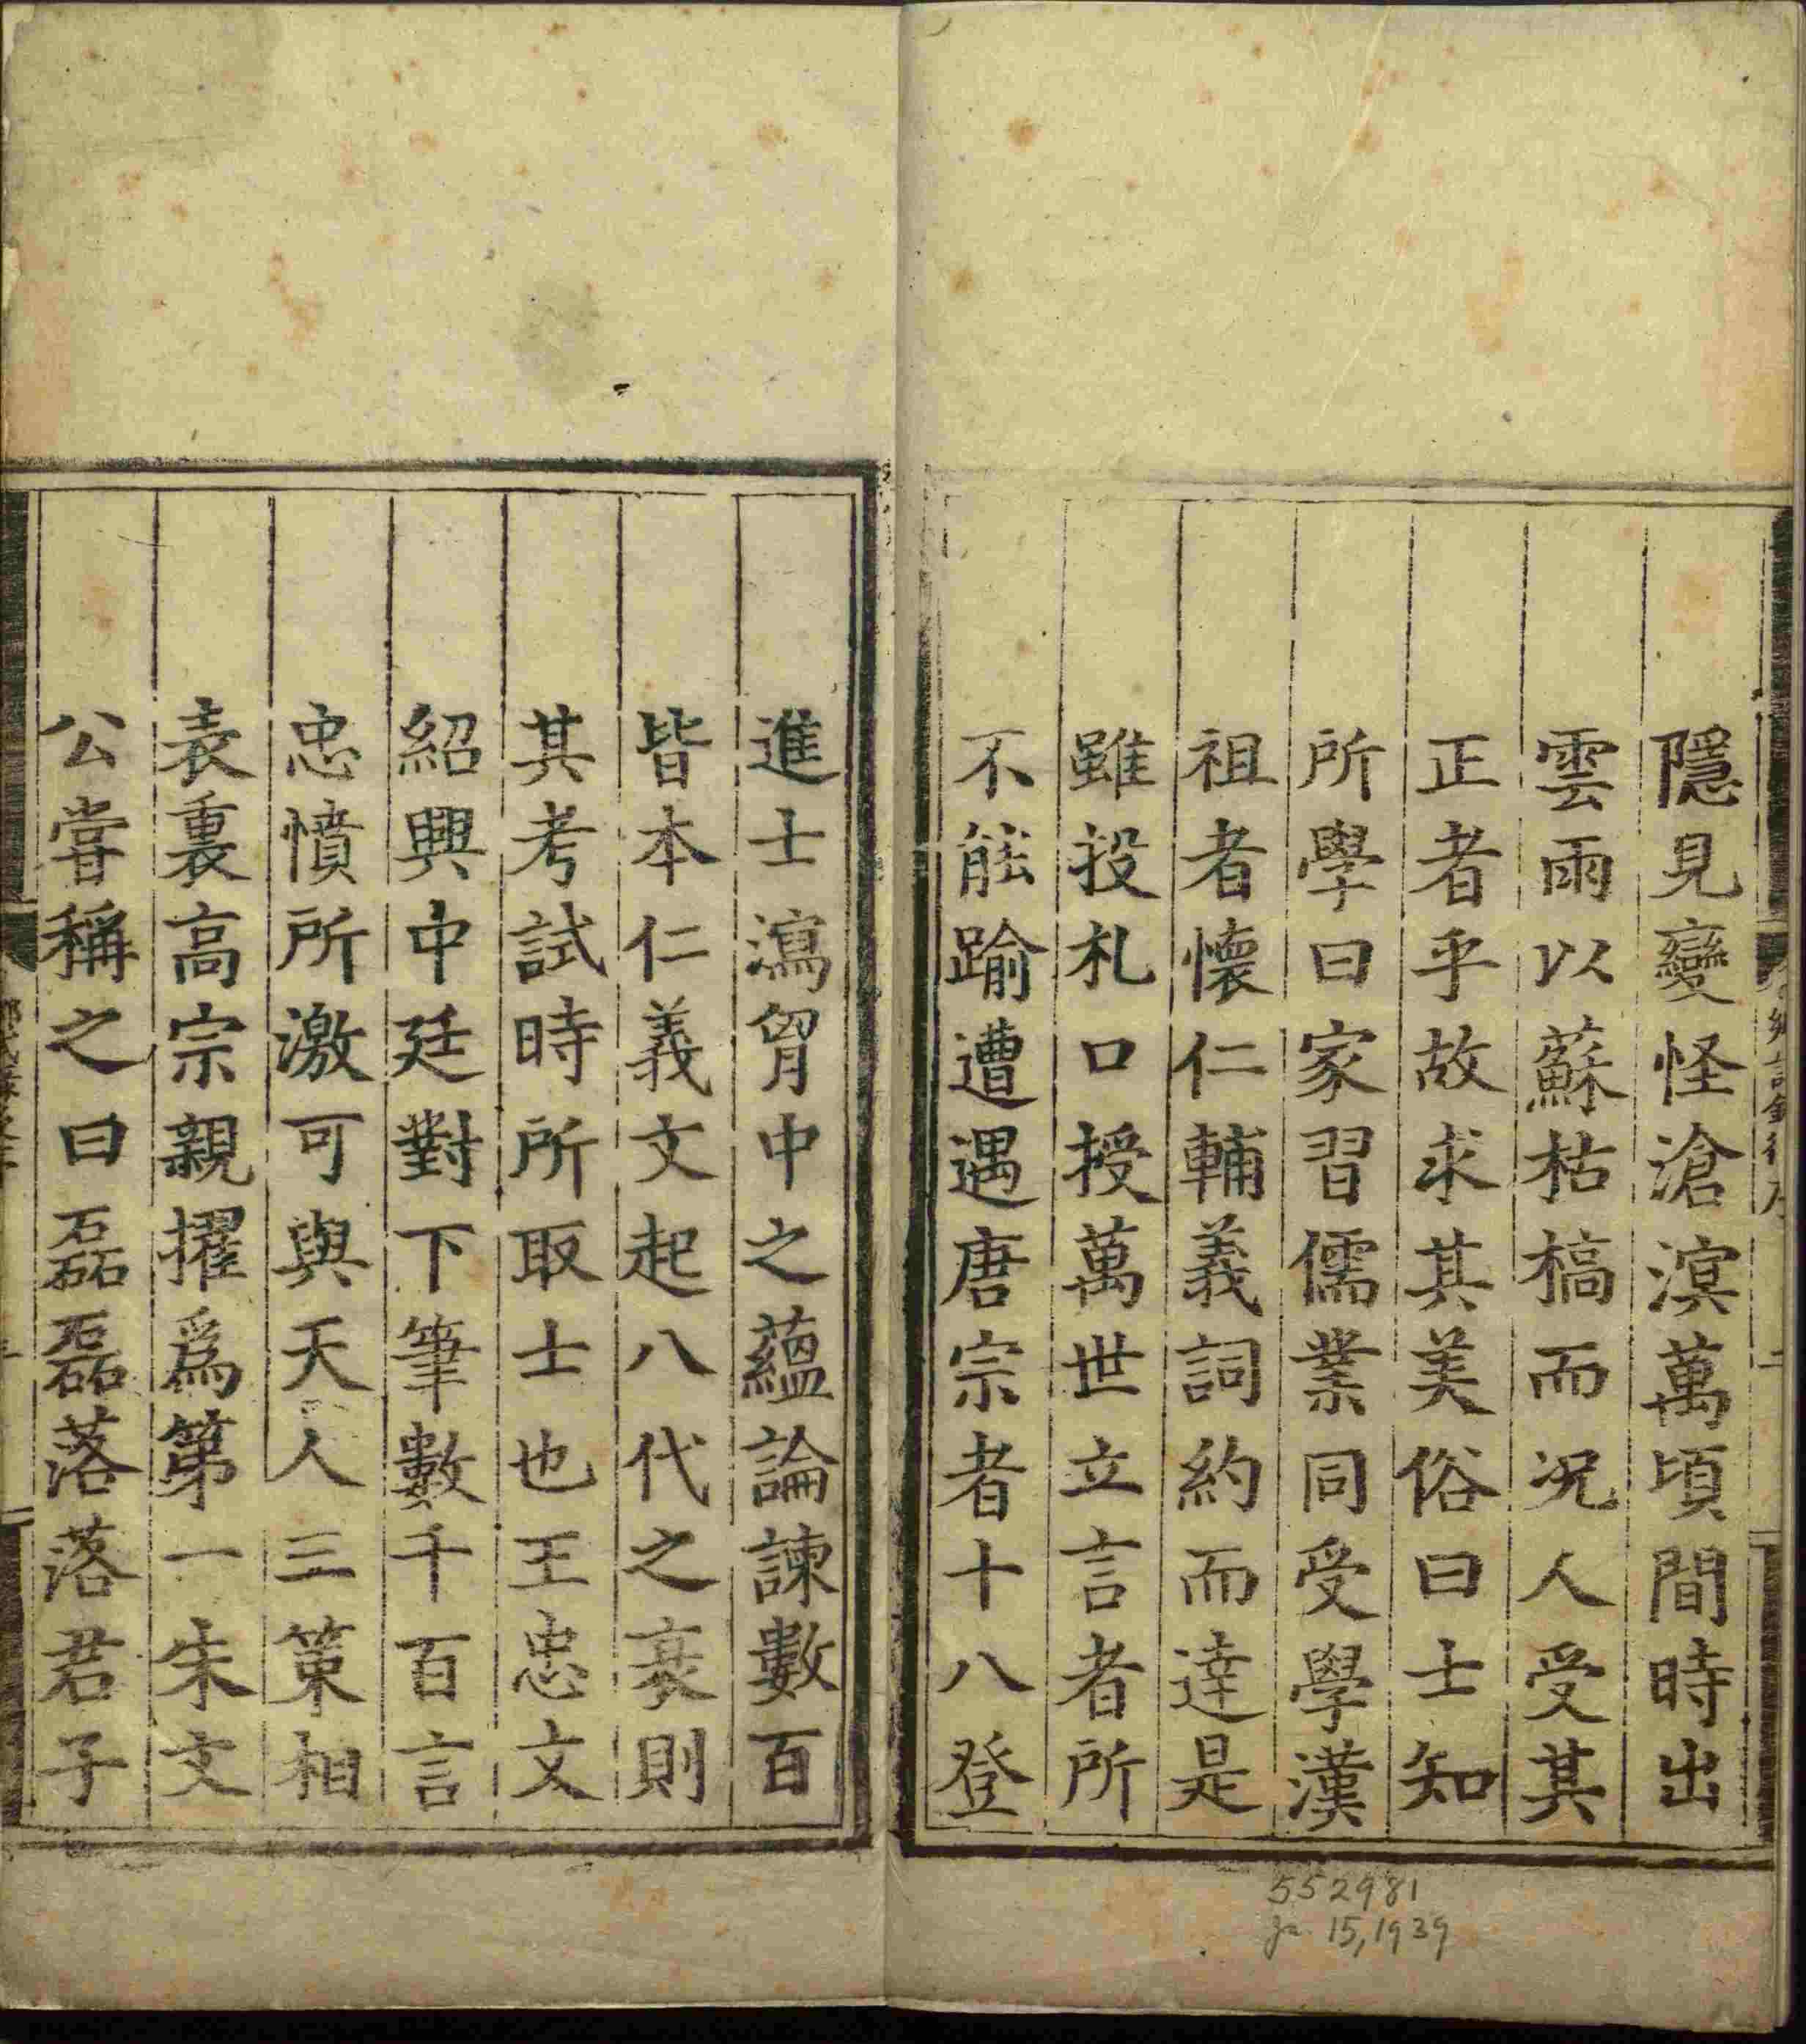 隱見變怪滄溟萬頃間時出
雲雨以蘇枯槁而况人受其
正者乎故求其美俗曰士知
所學曰家習儒業同受學漢
祖者懷仁輔義詞約而達是
雖投札口授萬世立言者所
不能踰遭遇唐宗者十八登
進士瀉胷中之蘊論諫數百
皆本仁義文起八代之衰則
其考試時所取士也王忠文
紹興中廷對下筆數千百言
忠憤所激可與天人三策相
表裏高宗親擢爲第一朱文
公嘗稱之曰磊磊落落君子
552981
Ja 15, 1939